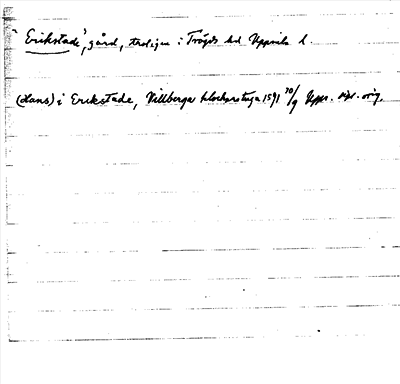 "Erikstade", gård, troligen i Trögds hd Uppsala l.
(Hans) i Erikstade, Villberga klockarstuga 1591 30/9 Upps. dipl. orig.